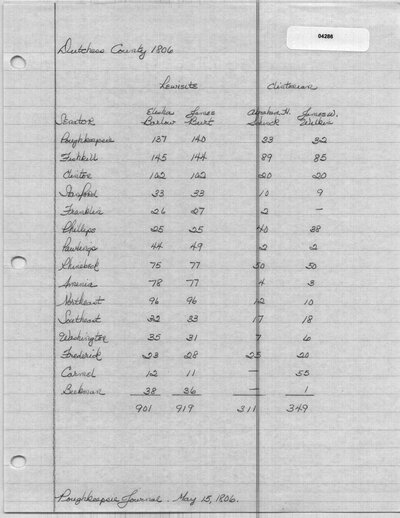 04286
Dutchess County 1806
Lewisite Clintonian
Elisha James Abraham H. James W.
Senator Barlow Burt Schenck Walker
Poughkeepsie 137 140 33 32
Fishkill 145 144 89 85
Clinton 102 102 20 20
Stanford 33 33 10 9
Franklin 26 27 2 -
Phillips 25 25 40 38
Pawlings 44 49 2 2
Rhinebeck 75 77 50 50
Amenia 78 77 4 3
Northeast 96 96 12 10
Southeast 32 33 17 18
Washington 35 31 7 6
Frederick 23 28 25 20
Carmel 12 11 - 55
Beekman 38 36 - 1
901 919 311 349
Poughkeepsie Journal. May 15, 1806.